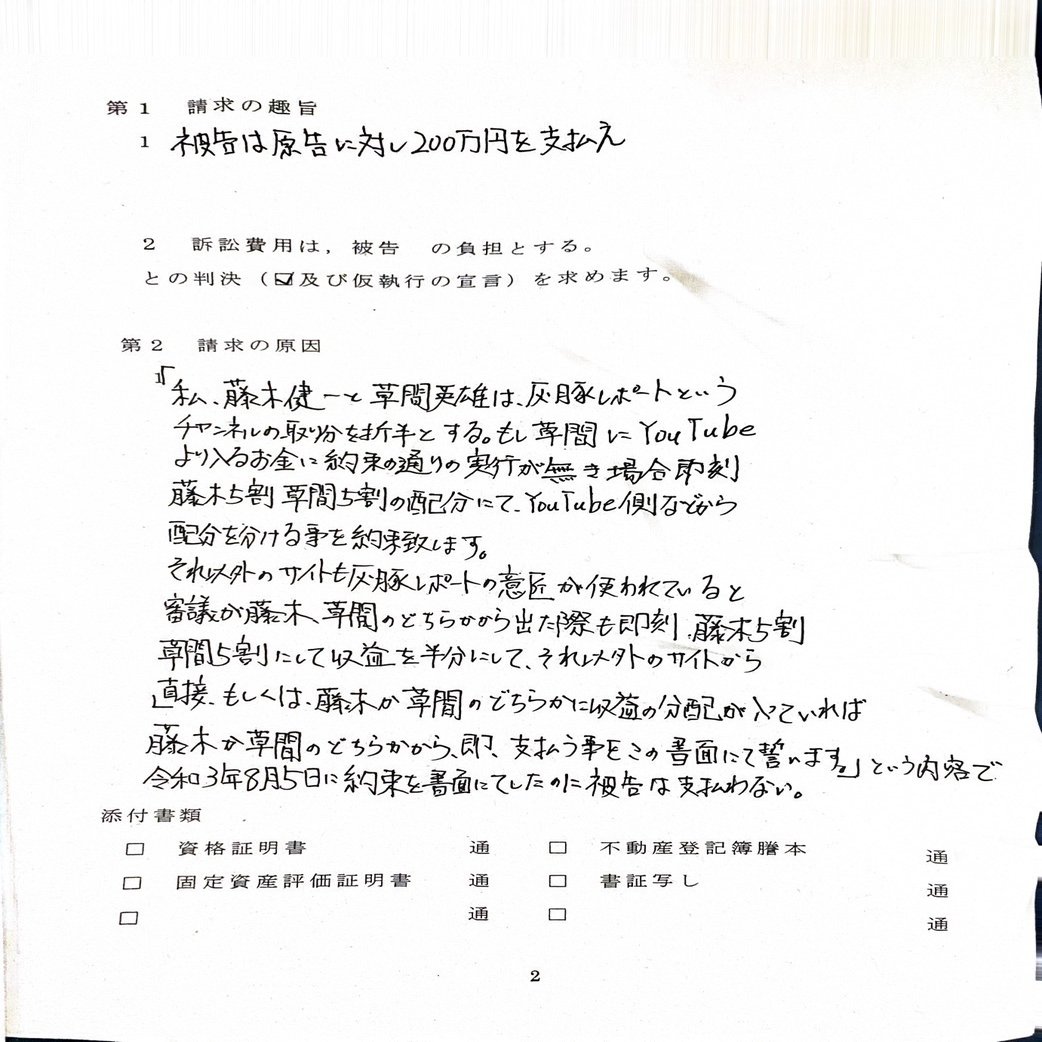 第1 請求の趣旨
1 被告は原告に対し200万円を支払え
2 訴訟費用は，被告 の負担とする。
との判決（☑及び仮執行の宣言）を求めます。
第2 請求の原因
1「私、藤木健一と草間英雄は、灰豚レポートという
チャンネルの取り分を折半とする。もし草間にYouTube
より入るお金に約束の通りの実行が無き場合即刻
藤木5割草間5割の配分にて、YouTube側などから
配分を分ける事を約束致します。
それ以外のサイトも灰豚レポートの意匠が使われていると
審議が藤木、草間のどちらかから出た際も即刻、藤木5割
草間5割にして収益を半分にして、それ以外のサイトから
直接、もしくは、藤木か草間のどちらかに収益の分配が入っていれば
藤木か草間のどちらかから、即、支払う事をこの書面にて誓います。」という内容で
令和3年8月5日に約束を書面にてしたのに被告は支払わない。
添付書類
□ 資格証明書 通 □ 不動産登記簿謄本 通
□ 固定資産評価証明書 通 □ 書証写し 通
□ 通 □ 通
2